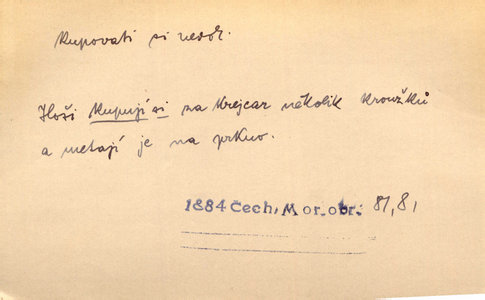 Kupovati si nedok.
Hoši kupují si za krejcar několik kroužků
a metají je na prkno.
1884 Čech, Mor. obr. 81, 81